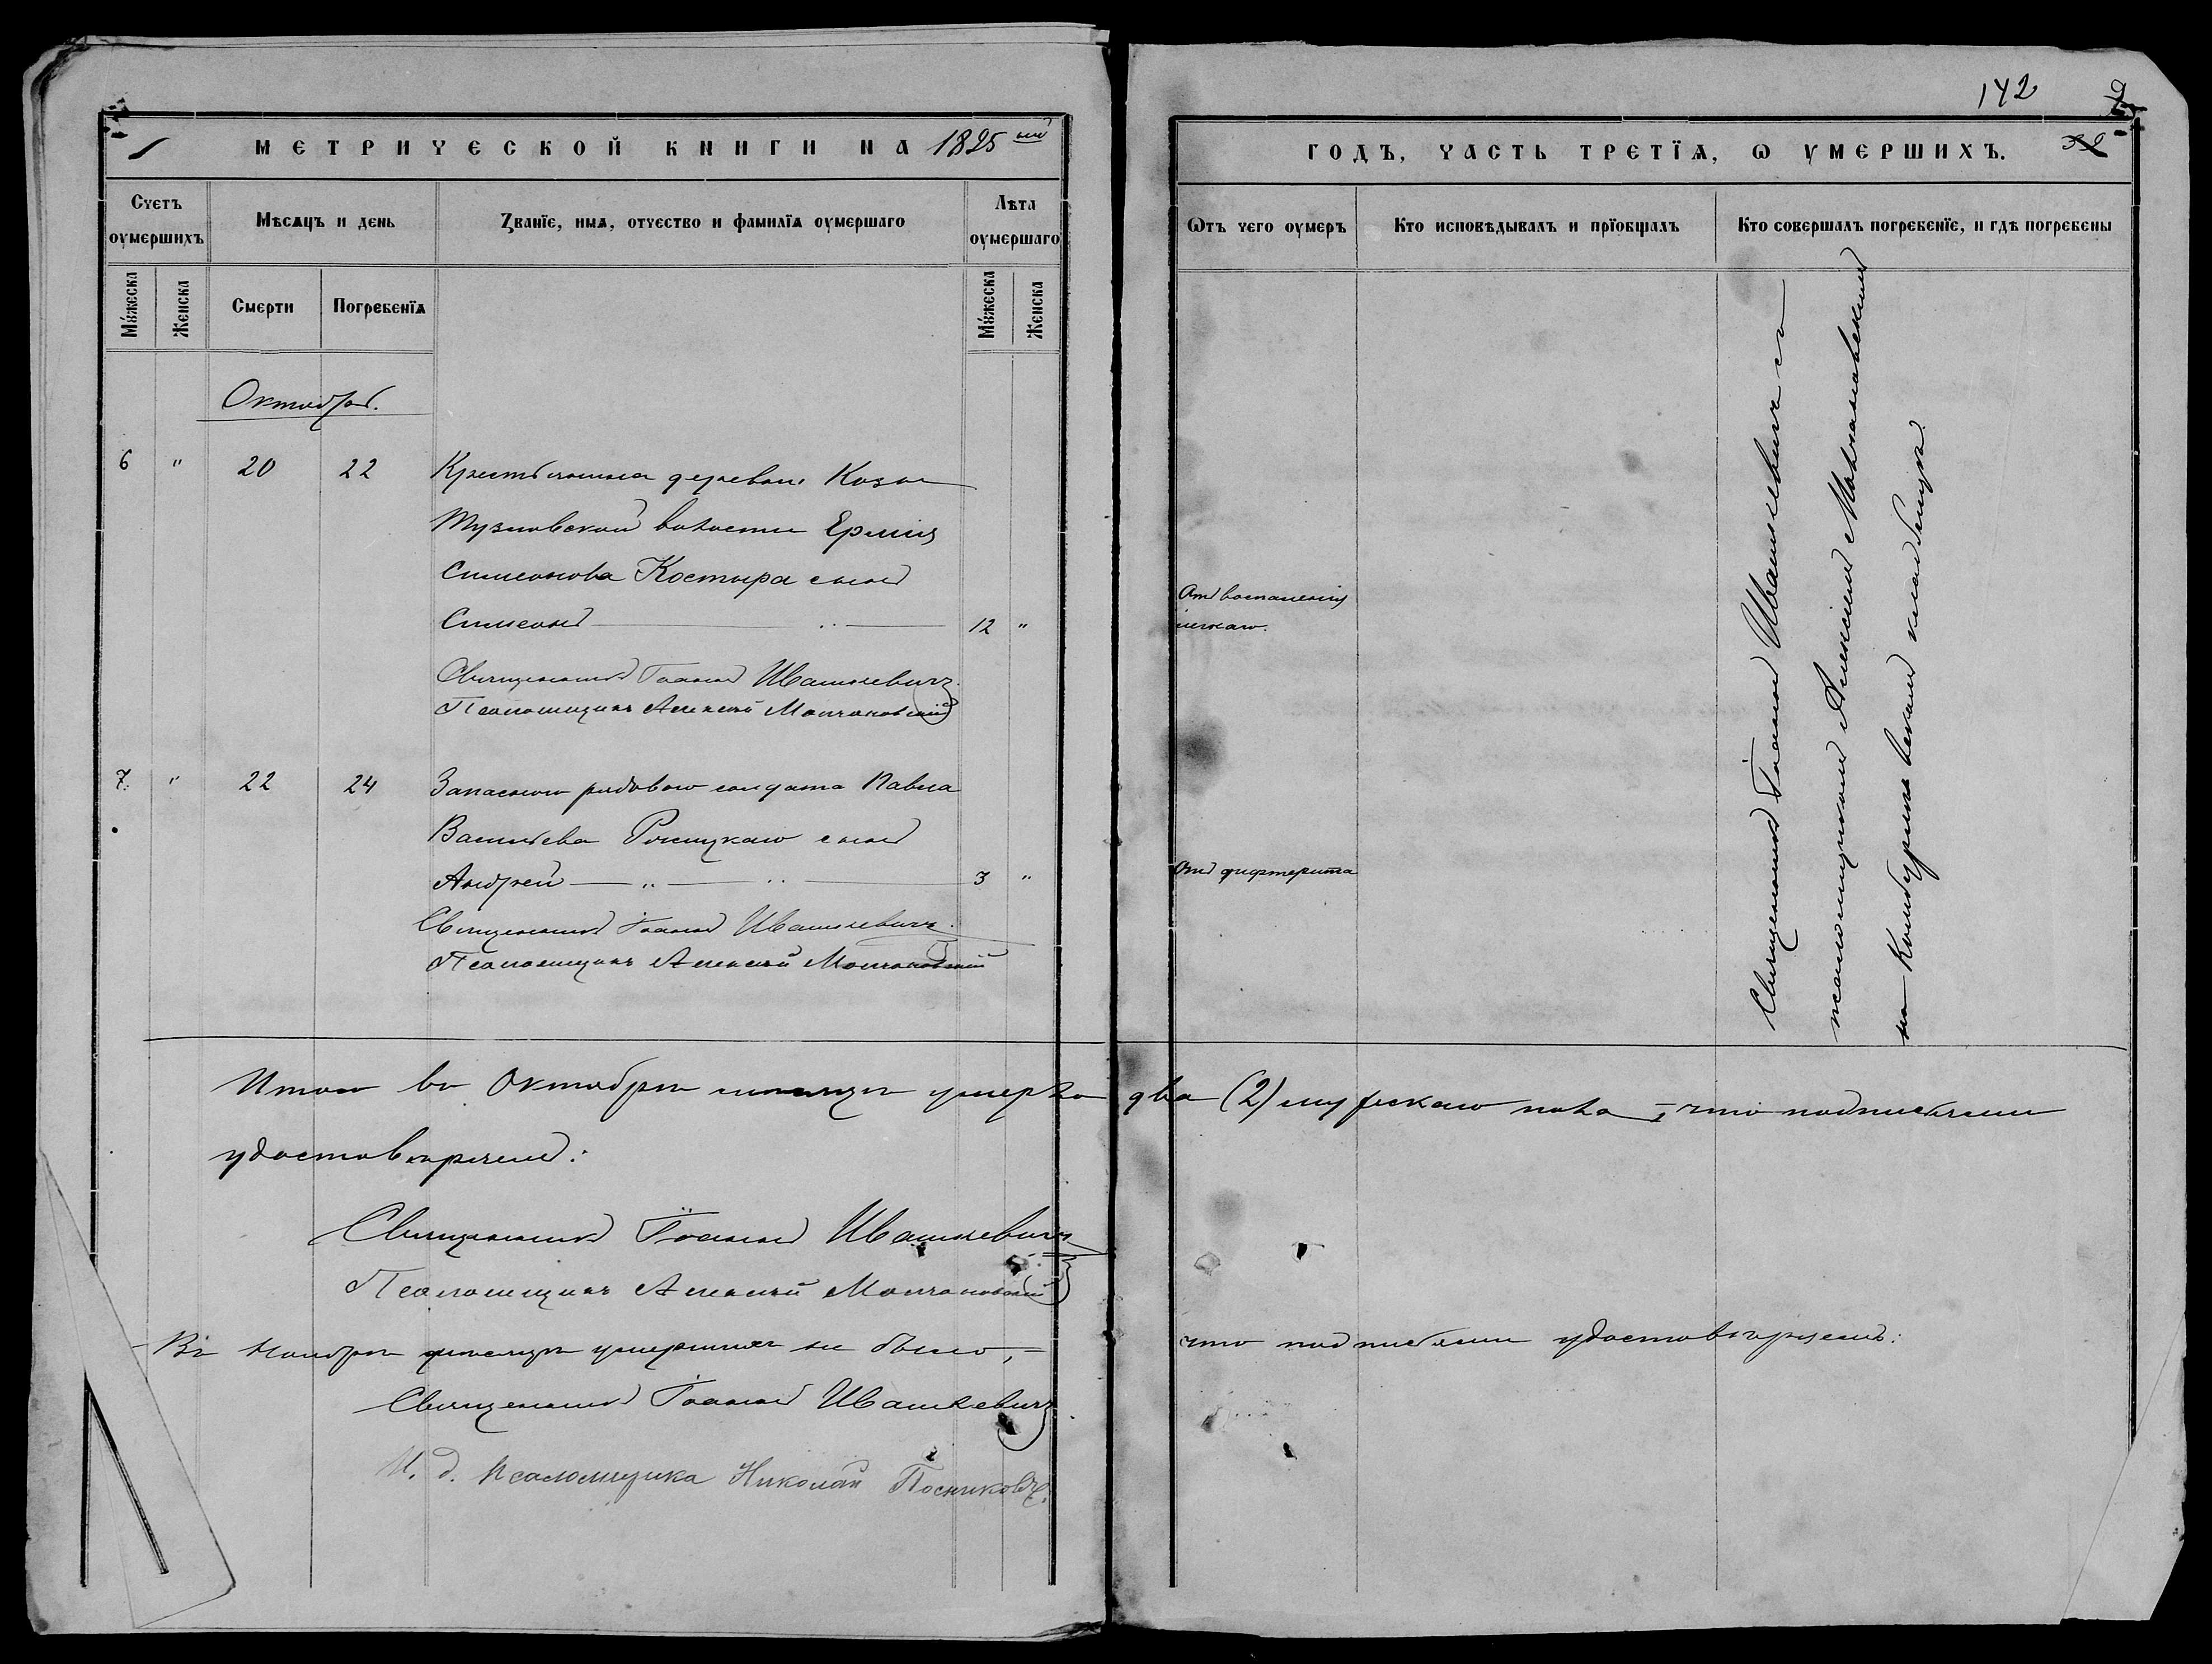 142
МЕТРИЧЕСКОЙ КНИГИ НА 1895 ый
ГОДЪ, ЧАСТЬ ТРЕТЇѦ, Ѡ УМЕРШИХЪ.
Счетъ оумершихъ
Мѣсѧцъ и день
Званїе, имѧ, отчество и фамилїѧ оумершаго
Лѣта оумершаго
Ѿтъ чего оумеръ
Кто исповѣдывалъ и прїобщалъ
Кто совершалъ погребенїе, и гдѣ погребены
Мужеска
Женска
Смерти
Погребенїѧ
Мужеска
Женска
Октябрь.
6 " 20 22 Крестьянина деревни
Тузловской волости Ермія
Симеонова Костыра сынъ
Симеонъ 12 "
Отъ воспаленія
легкаго.
Священникъ Іоаннъ Ивашкевичъ.
Псаломщикъ Алексѣй Молчановскій
7. " 22 24 Запаснаго рядового солдата Павла
Васильева сынъ
Андрей 3 "
Отъ дифтерита
Священникъ Іоаннъ Ивашкевичъ.
Псаломщикъ Алексѣй Молчановскій
Священникъ Іоаннъ Ивашкевичъ съ
псаломщикомъ Алексѣемъ Молчановскимъ
на кладбищѣ.
Итого въ Октябрѣ мѣсяцѣ умерло два (2) мужескаго пола, что подписями
удостовѣряемъ:
Священникъ Іоаннъ Ивашкевичъ
Псаломщикъ Алексѣй Молчановскій
Въ Ноябрѣ мѣсяцѣ умершихъ не было, = что подписями удостовѣряемъ:
Священникъ Іоаннъ Ивашкевичъ
И. д. псаломщика Николай Посниковъ.